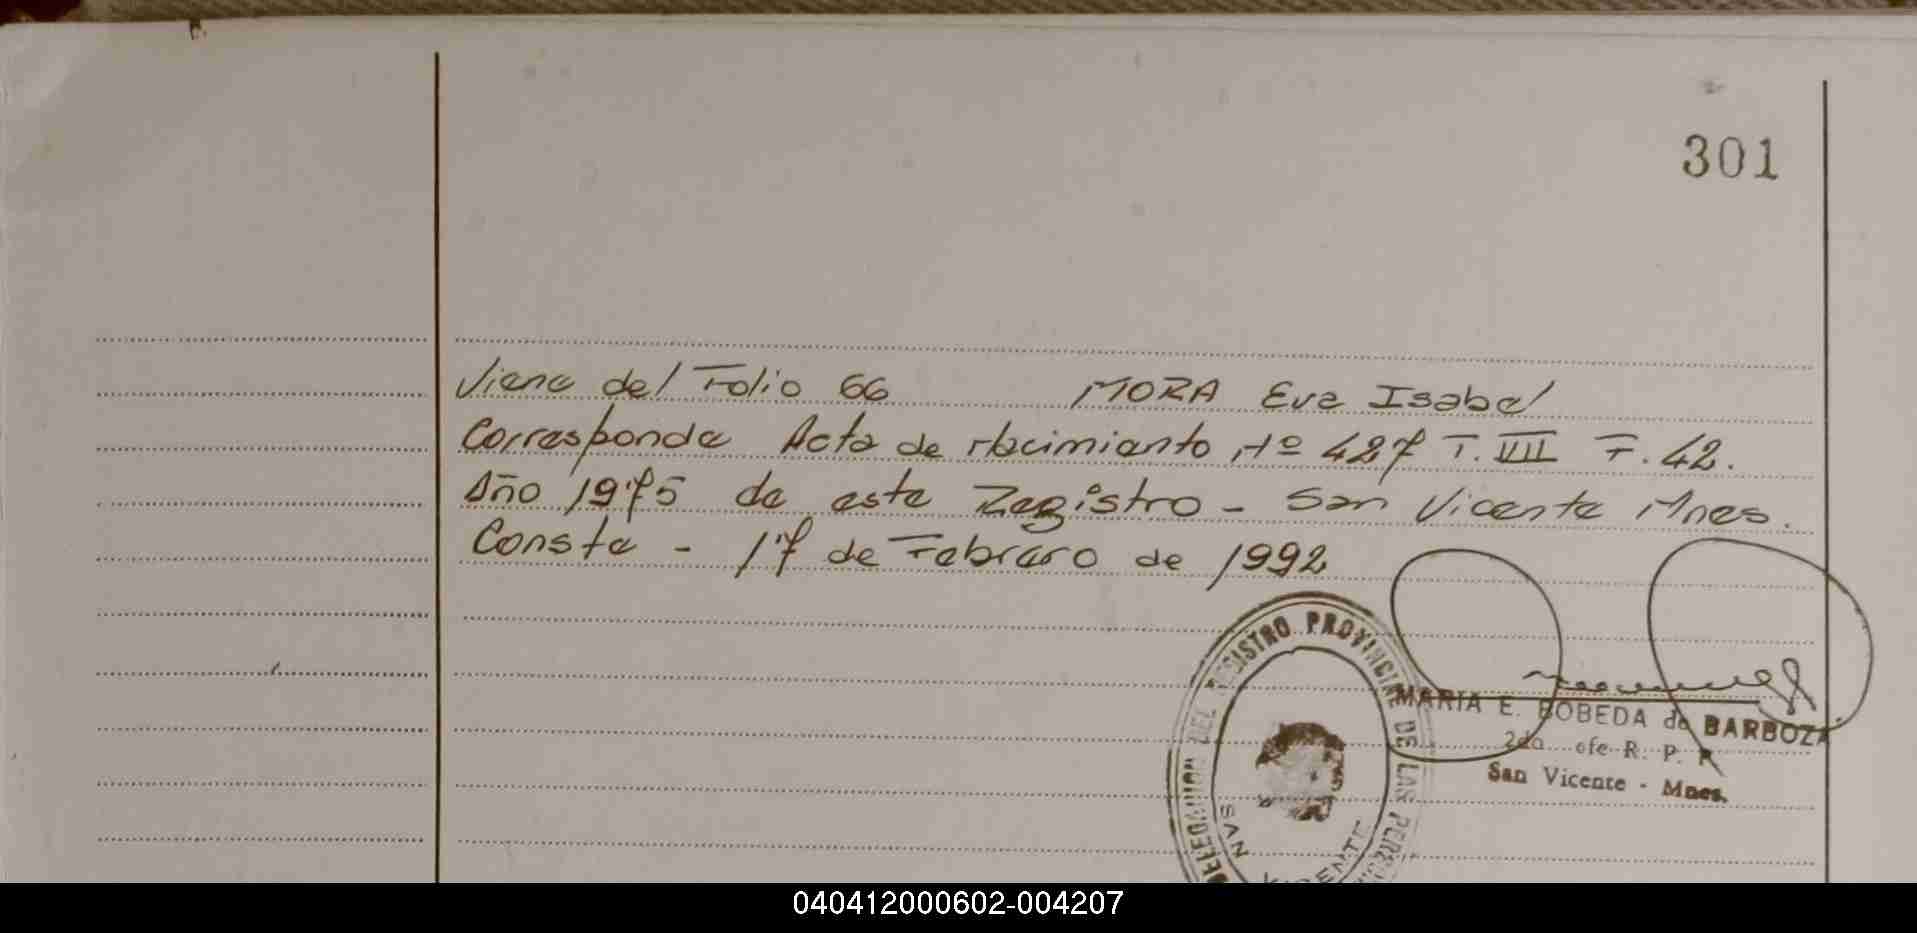 301
Viene del Folio 66 MORA Eva Isabel
Corresponde Acta de Nacimiento Nº 427 T. VIII F. 42.
Año 1975 de este Registro - San Vicente Mnes.
Conste - 17 de Febrero de 1992
DELEGACION DEL REGISTRO PROVINCIAL DE LAS
SAN VICENTE
MARIA E. BOBEDA de BARBOZA
2do. efe R. P. P.
San Vicente - Mnes.
040412000602-004207